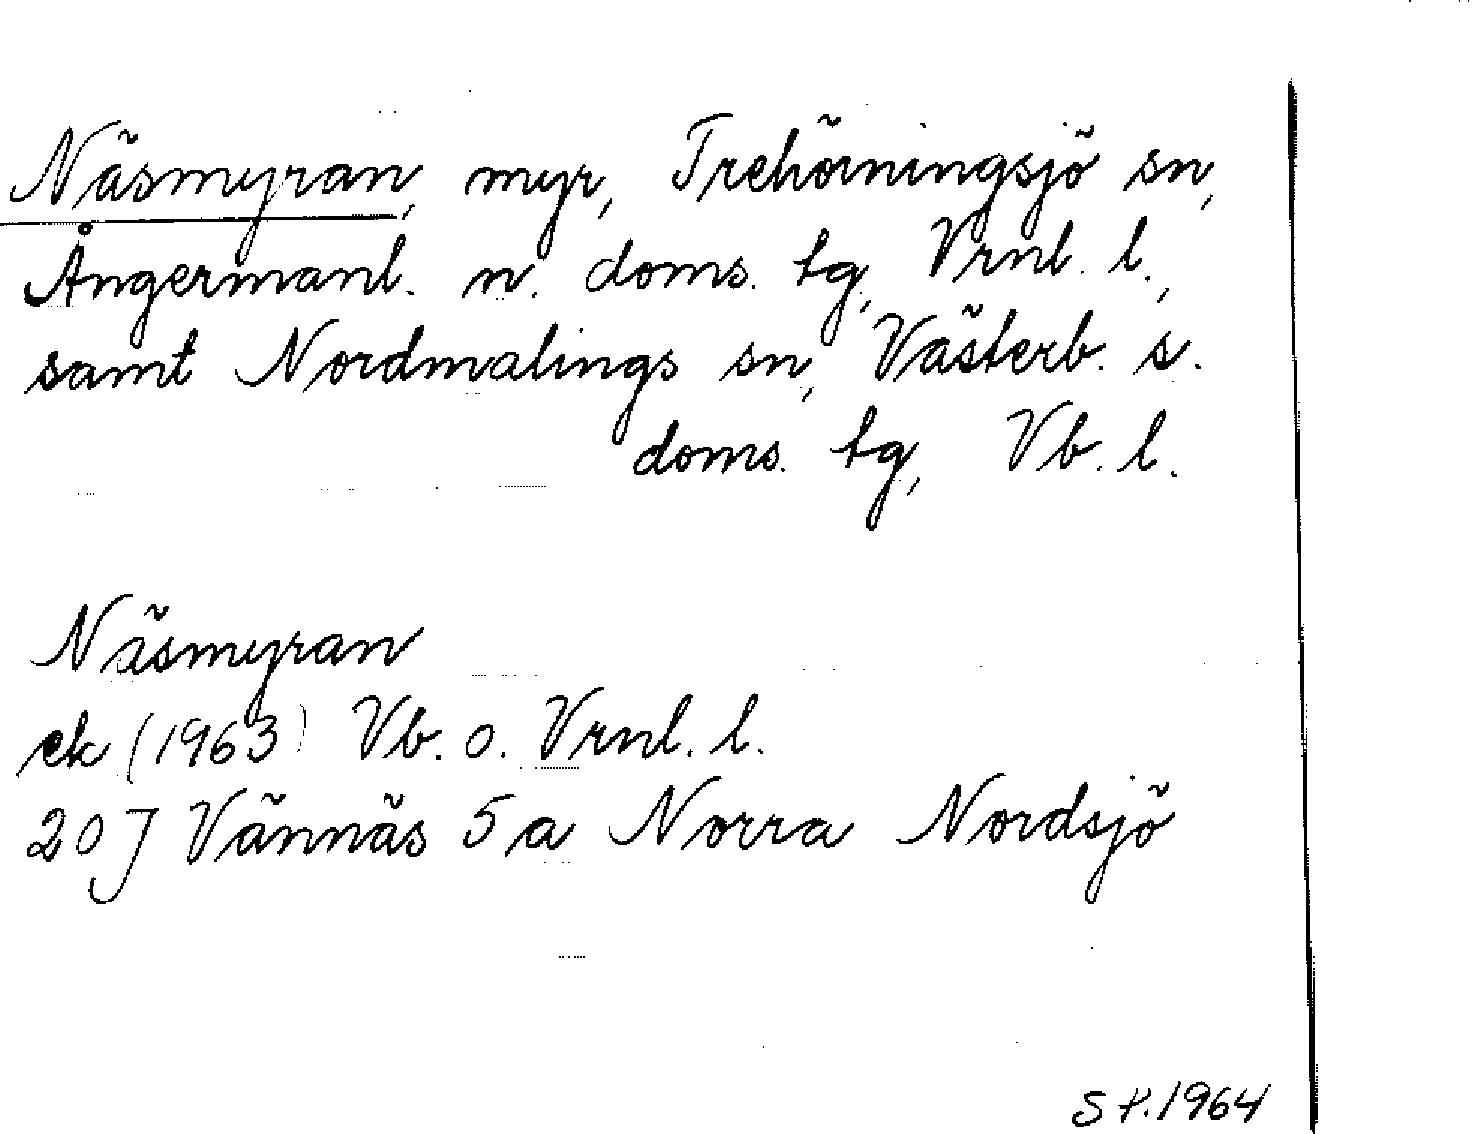 Näsmyran, myr, Trehörningsjö sn,
Ångermanl. n. doms. tg, Vrnl. l.,
samt Nordmalings sn, Västerb. s.
doms. tg, Vb. l.
Näsmyran
ek (1963) Vb. o. Vrnl. l.
20 J Vännäs 5 a Norra Nordsjö
1964